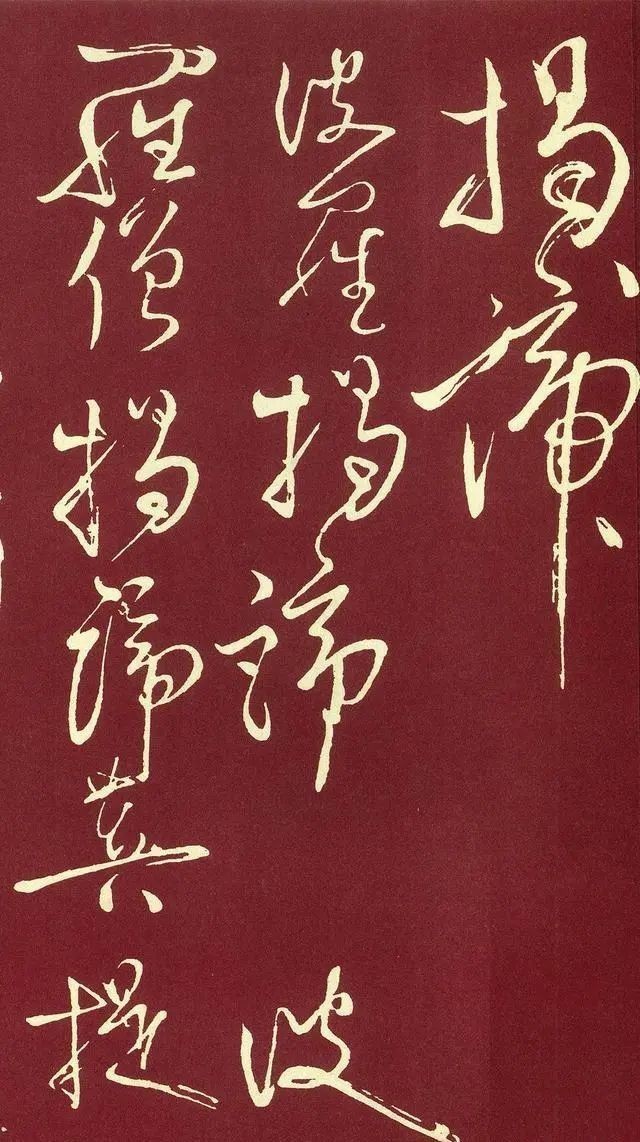 揭諦
波羅揭諦波
羅僧揭諦提